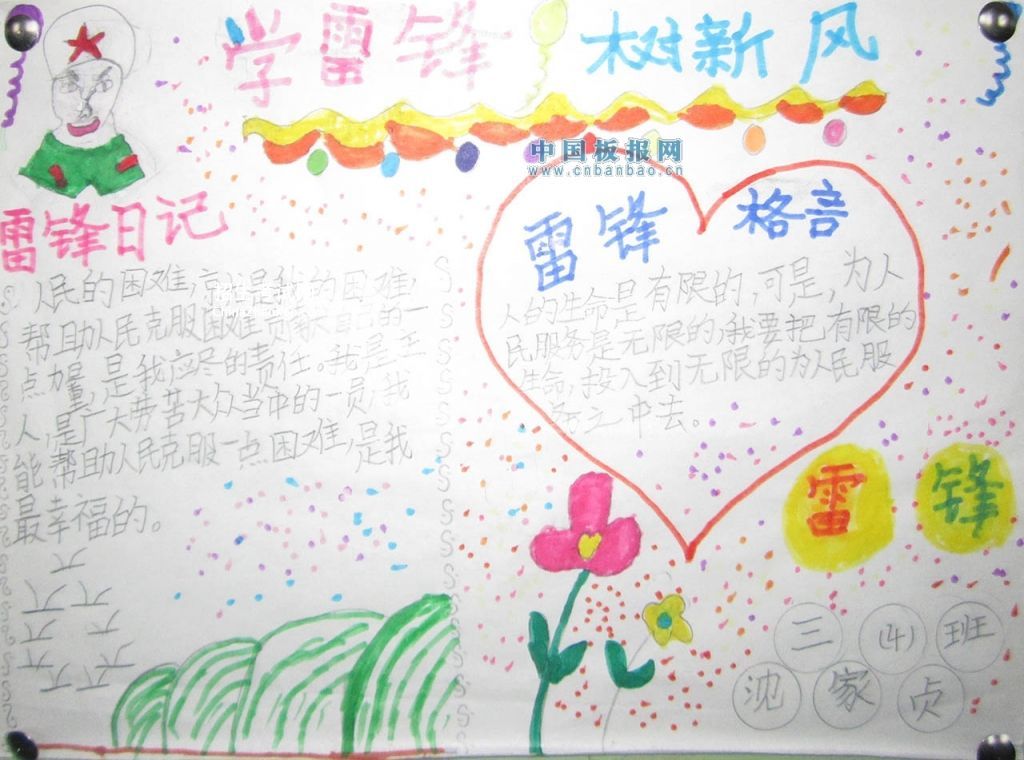 学雷锋 树新风
中国板报网
www.cnbanbao.cn
雷锋日记
人民的困难,就是我的困难,
帮助人民克服困难贡献自己的一
点力量,是我应尽的责任。我是主
人,是广大劳苦大众当中的一员,我
能帮助人民克服一点困难,是我
最幸福的。
雷锋格言
人的生命是有限的,可是,为人
民服务是无限的,我要把有限的
生命,投入到无限的为人民服
务之中去。
雷锋
三(4)班
沈家贞